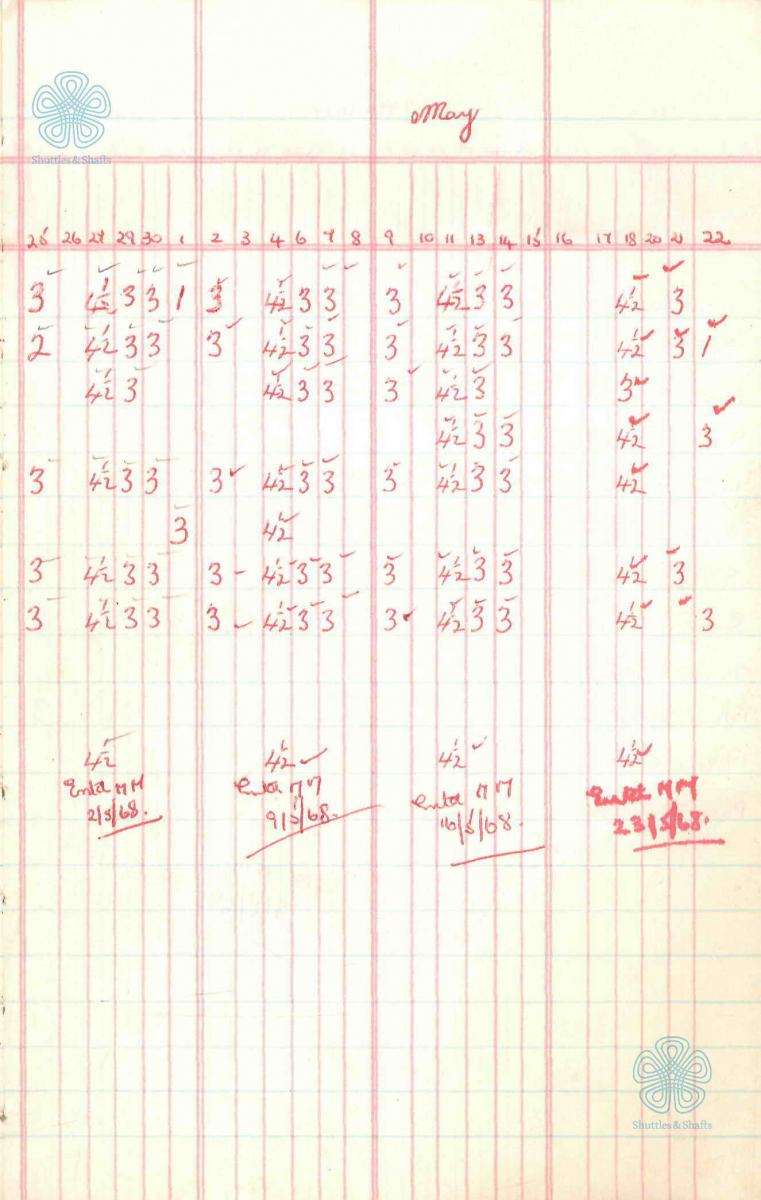 May
Shuttles & Shafts
25 26 27 29 30 1 2 3 4 6 7 8 9 10 11 13 14 15 16 17 18 20 21 22
3 4½ 3 3 1 3 4½ 3 3 3 4½ 3 3 4½ 3
2 4½ 3 3 3 4½ 3 3 3 4½ 3 3 4½ 3 1
4½ 3 4½ 3 3 3 4½ 3 3
4½ 3 3 4½ 3
3 4½ 3 3 3 4½ 3 3 3 4½ 3 3 4½
3 4½
3 4½ 3 3 3 4½ 3 3 3 4½ 3 3 4½ 3
3 4½ 3 3 3 4½ 3 3 3 4½ 3 3 4½ 3
4½ 4½ 4½ 4½
MM MM MM MM
2/5/68. 9/5/68. 16/5/68. 23/5/68.
Shuttles & Shafts